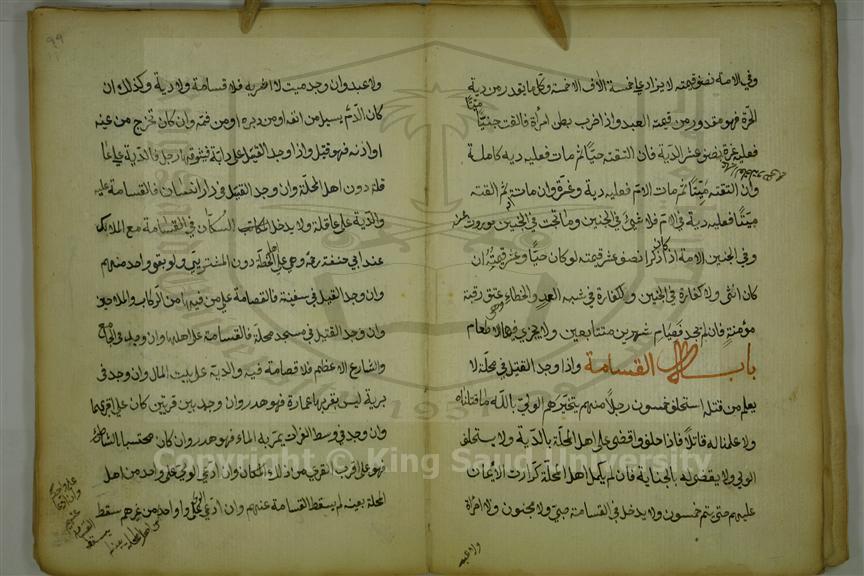 وفي الامة نصف قيمته لا يزاد على خمسة الاف الا خمسة وكل ما يقدر من دية
الحرة فهو مقدور من قيمة العبد واذا ضرب بطن امرأة فالقت جنينا ميتا
فعليه غرة نصف عشر الدية فان القته حيا ثم مات فعليه دية كاملة
وان القته ميتا ثم مات الام فعليه دية وغرة وان مات ثم القته
ميتا فعليه دية في الام فلا شئ في الجنين وما تجب في الجنين موروث عنه
وفي الجنين الامة اذا كان ذكرا نصف عشر قيمته لو كان حيا وعشر قيمته ان
كان انثى ولا كفارة في الجنين والكفارة في شبه العمد والخطاء عتق رقبة
مؤمنة فان لم يجد فصيام شهرين متتابعين ولا يجزي فيها الاطعام
باب القسامة واذا وجد القتيل في محلة لا
يعلم من قتله استحلف خمسون رجلا منهم يتخيرهم الولي بالله ما قتلناه
ولا علمنا له قاتلا فاذا حلفوا قضى على اهل المحلة بالدية ولا يستحلف
الولي ولا يقضى له بالجناية فان لم يكمل اهل المحلة كررت الأيمان
عليهم حتى يتم خمسون ولا يدخل في القسامة صبي ولا مجنون ولا امرأة
ولا عبد
99
ولا عبد وان وجد ميت لا اثر به فلا قسامة ولا دية وكذلك ان
كان الدم يسيل من انفه او من دبره او من فمه وان كان تخرج من عينه
او اذنه فهو قتيل واذا وجد القتيل على دابة يسوقها رجل فالدية على عا
قلته دون اهل المحلة وان وجد القتيل في دار انسان فالقسامة عليه
والدية على عاقلته ولا يدخل السكان في القسامة مع الملاك
عند ابي حنيفة رحمه وهي على اهل الخطة دون المشتريين ولو بقي واحد منهم
وان وجد القتيل في سفينة فالقسامة على من فيها من الركاب والملاحين
وان وجد القتيل في مسجد محلة فالقسامة على اهلها وان وجد في الجامع
والشارع الاعظم فلا قسامة فيه والدية على بيت المال وان وجد في
برية ليس بقربها عمارة فهو هدر وان وجد بين قريتين كان على اقربهما
وان وجد في وسط الفرات يمر به الماء فهو هدر وان كان محتبسا بالشاطئ
فهو على اقرب القرى من ذلك المكان وان ادعى الولي على واحد من اهل
المحلة بعينه لم يسقط القسامة عنهم وان ادعى الولي على واحد من غيرهم سقط
Copyright © King Saud University